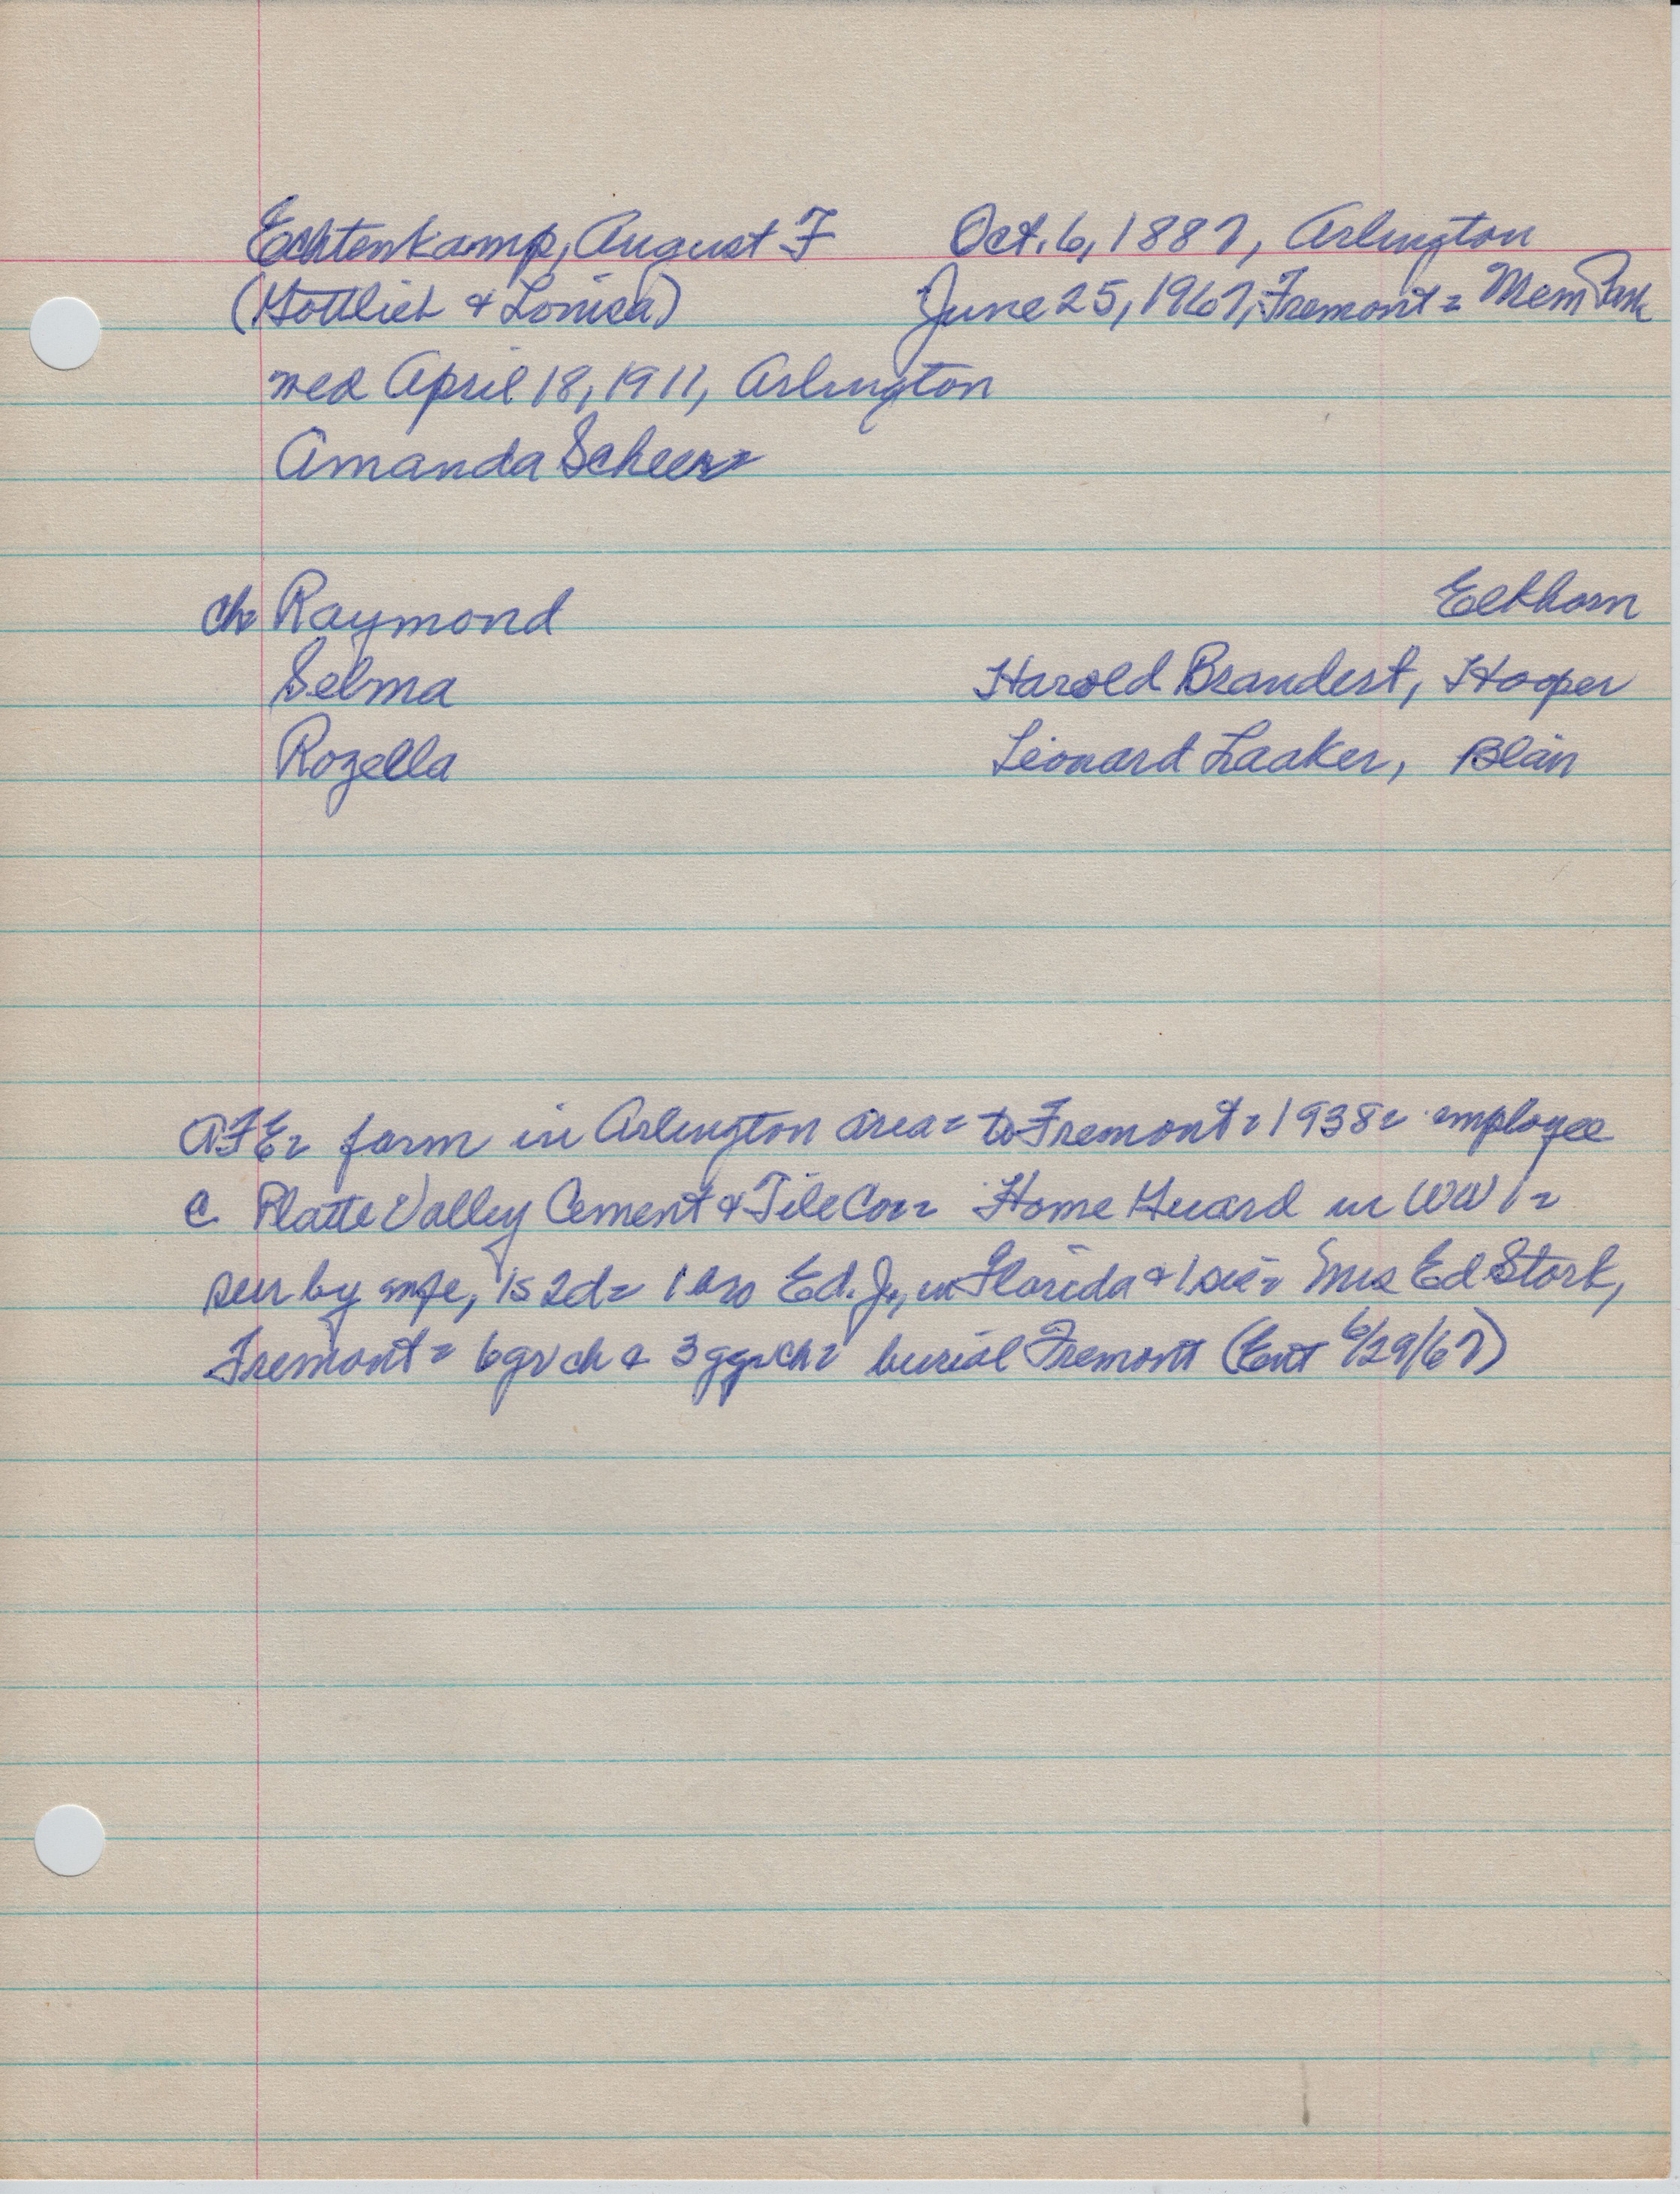 Echtenkamp, August F Oct. 6, 1887, Arlington
(Gottlieb & Louisa) June 25, 1967, Fremont = Mem Park
wed April 18, 1911, Arlington
Amanda Scheer =
ch Raymond Elkhorn
Selma Harold Brandert, Hooper
Rozella Leonard Laaker, Blair
AFE = farm in Arlington area = to Fremont = 1938 = employee
c. Platte Valley Cement & Tile Co = Home Guard in WW 1 =
sur by wife, 1s 2d = 1 bro Ed. Jr., in Florida & 1 sis = Mrs Ed Stork,
Fremont = 6 gr ch & 3 ggr ch = burial Fremont (Ent 6/29/67)